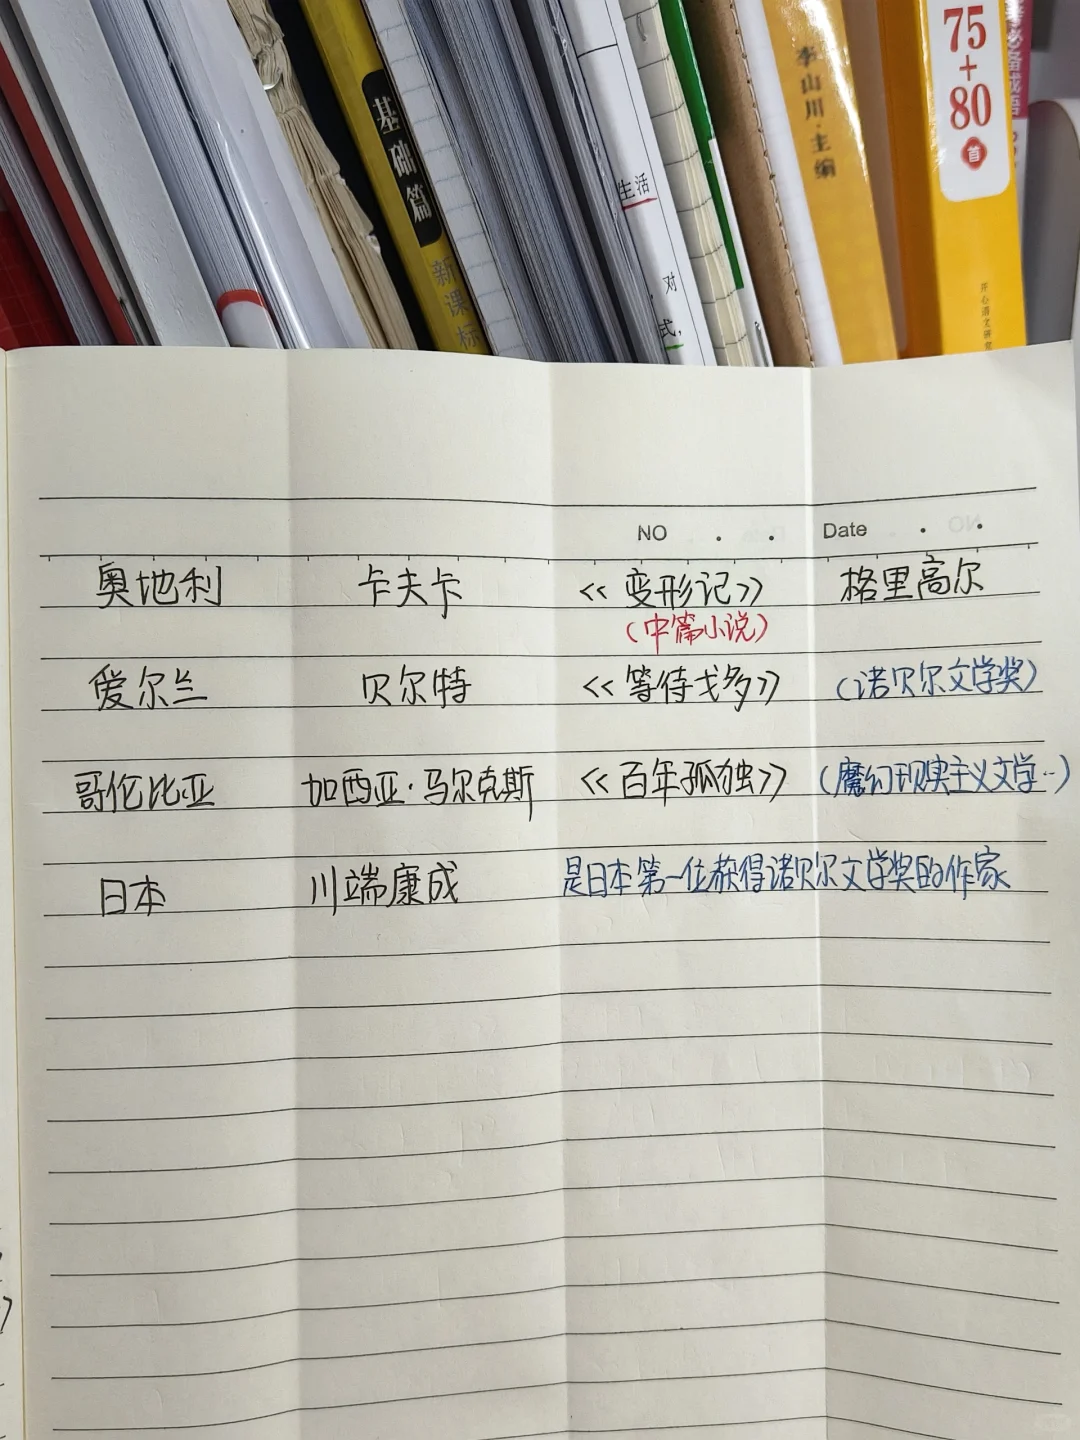 基础篇
新课标
生活
对
式,
李山川·主编
75
+
80
首
NO . . Date . .
奥地利 卡夫卡 《变形记》 格里高尔
(中篇小说)
爱尔兰 贝尔特 《等待戈多》 (诺贝尔文学奖)
哥伦比亚 加西亚·马尔克斯 《百年孤独》 (魔幻现实主义文学··)
日本 川端康成 是日本第一位获得诺贝尔文学奖的作家